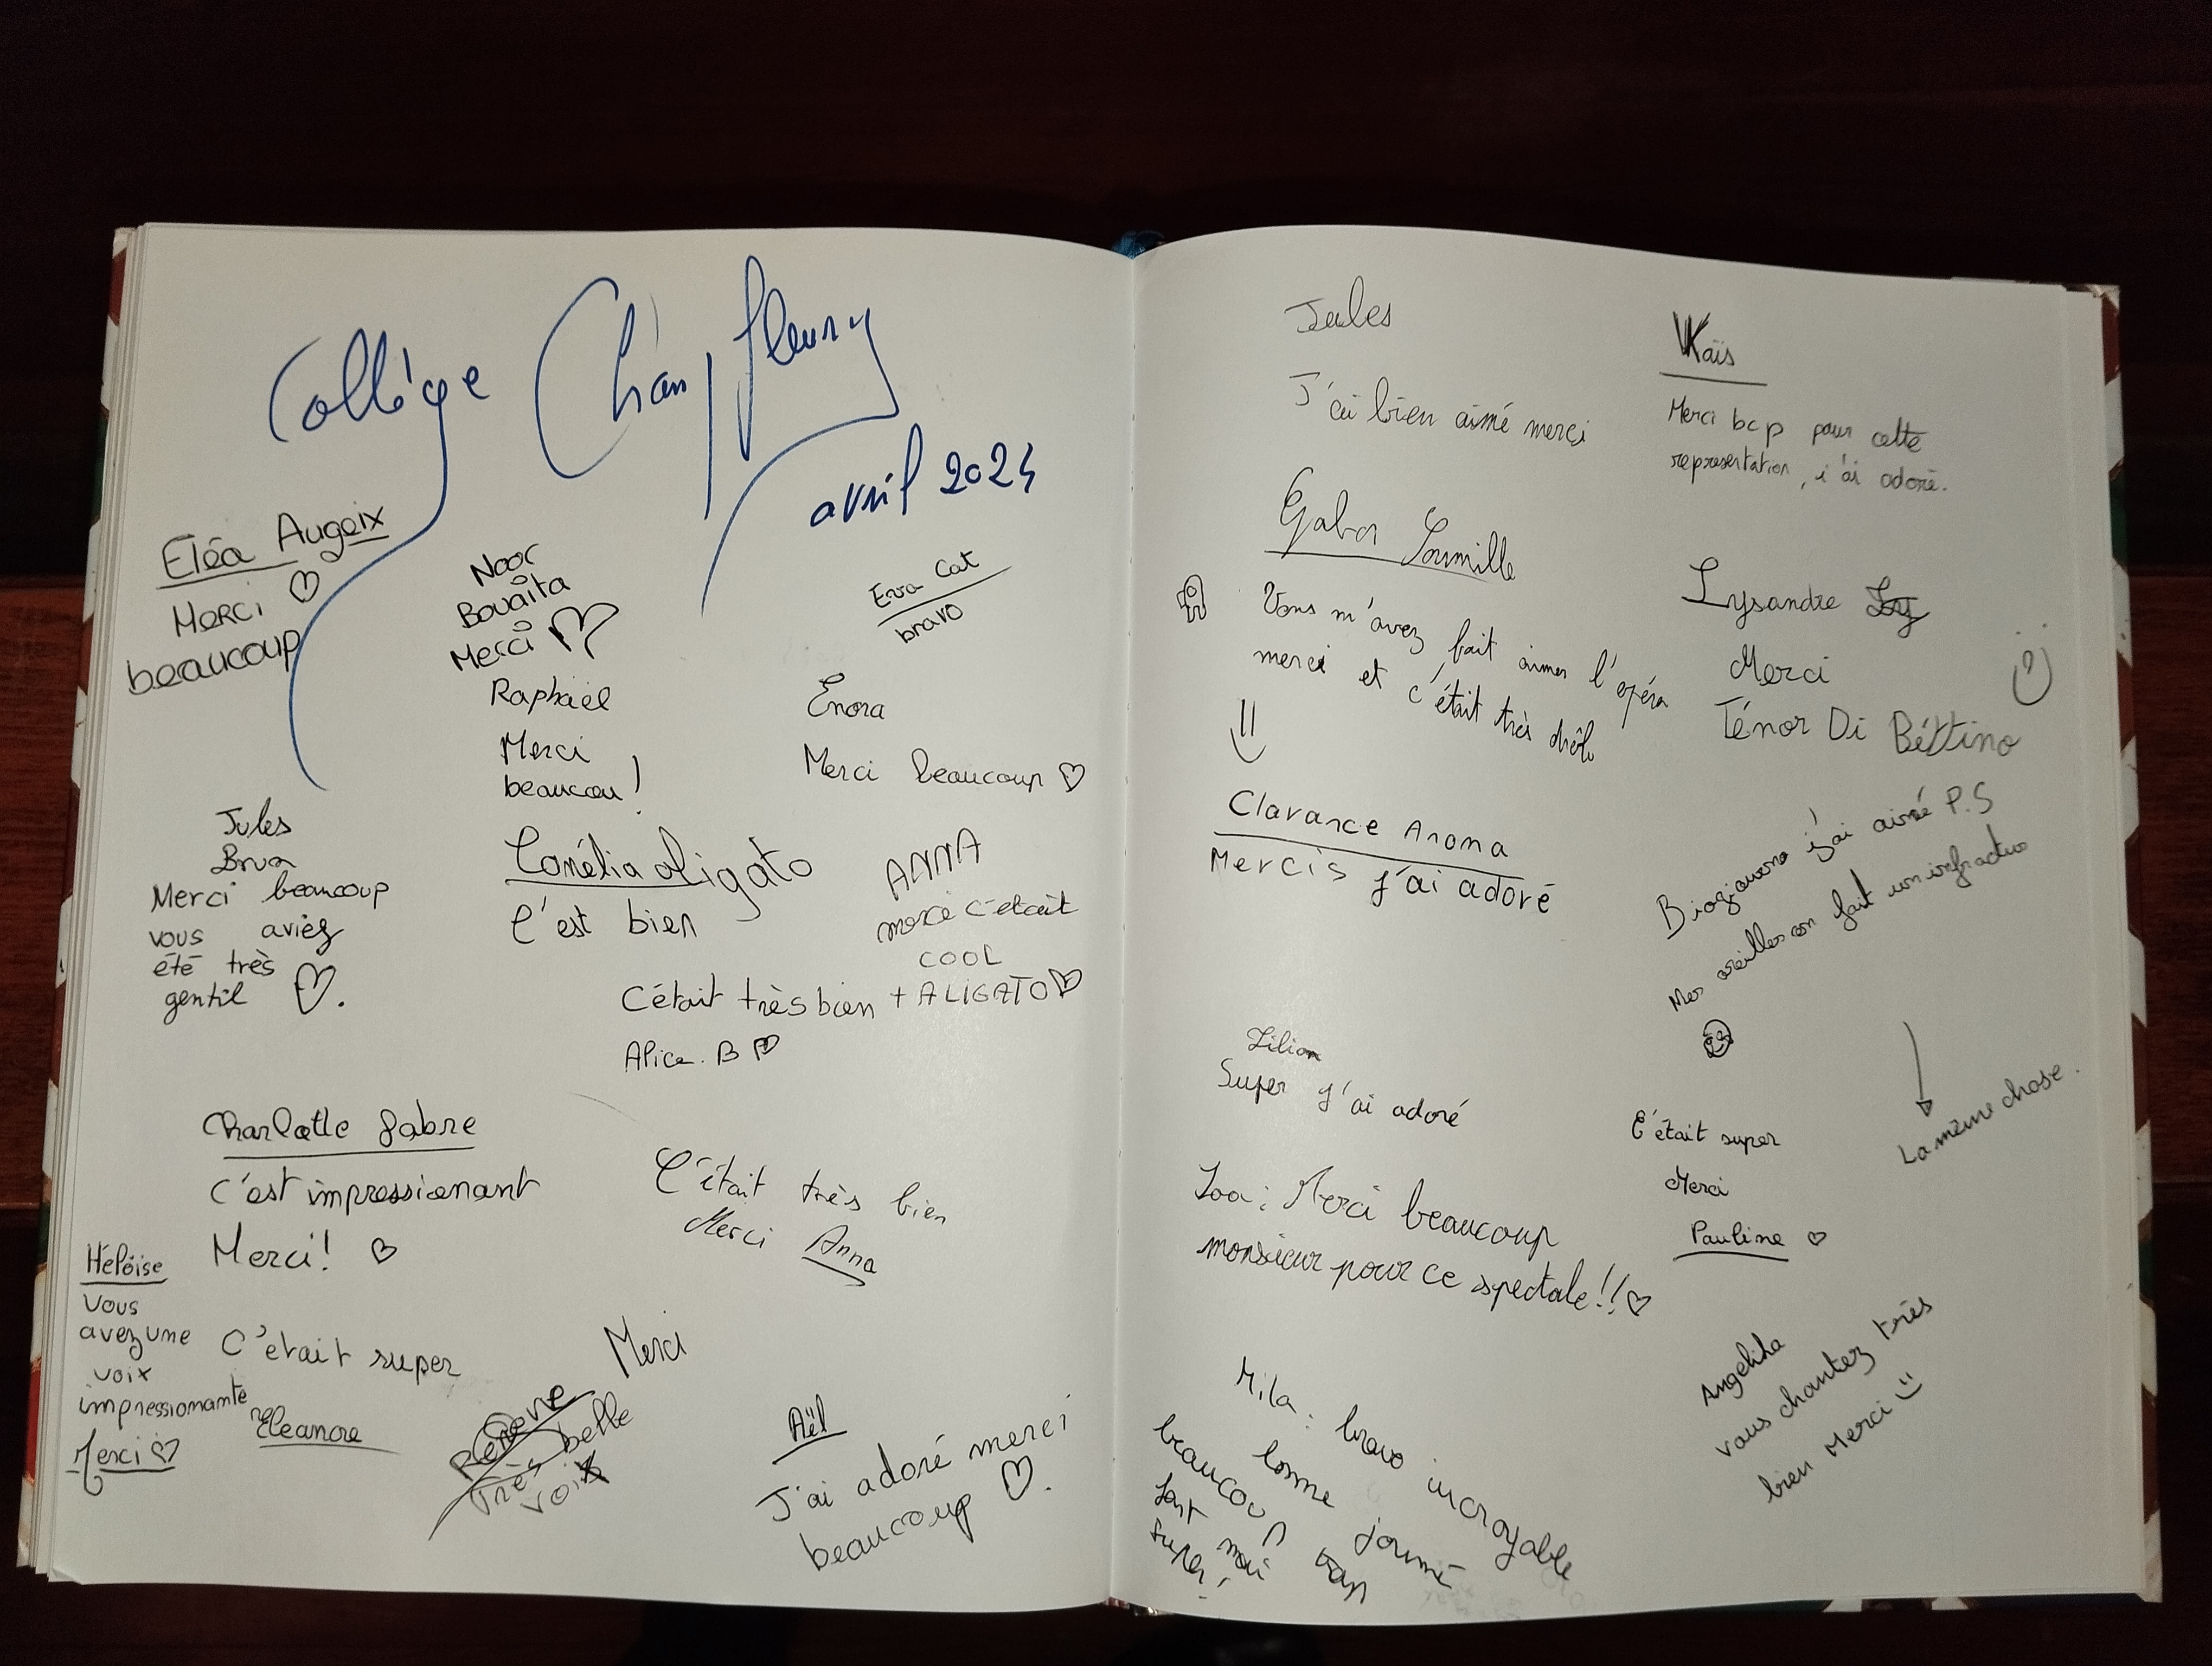 Collège Champfleury
avril 2024
Eléa Augeix
Merci
beaucoup
Noor
Bouaita
Merci
Eva Cat
bravo
Raphaël
Merci
beaucou!
Enora
Merci beaucoup
Jules
Brun
Merci beaucoup
vous aviez
été très
gentil
aligato
C'est bien
ANNA
c'etait
COOL
+ ALIGATO
C'était très bien
Alice. B
Charlotte Fabre
c'est impressionant
Merci!
C'était très bien
Merci Anna
Héloïse
Vous
avez une
voix
impressionnante
Merci
C'etait super
Eleanore
Merci
Très belle
voix
Aël
J'ai adoré merci
beaucoup
Jules
J'ai bien aimé merci
Kaïs
Merci bcp pour cette
representation, j'ai adoré.
Gabor Soumille
Vous m'avez fait aimer l'opéra
merci et c'était très drôle
Lysandre
Merci
Ténor Di Béttino
Clarance Anoma
Mercis j'ai adoré
j'ai aimé P.S
Mes oreilles on fait un infractus
La même chose.
Lilian
Super j'ai adoré
C'était super
Merci
Pauline
Loa: Merci beaucoup
monsieur pour ce spectale!!
Mila: bravo incroyable
bonne journé
beaucoup
super!
Angeliha
vous chantez très
bien Merci